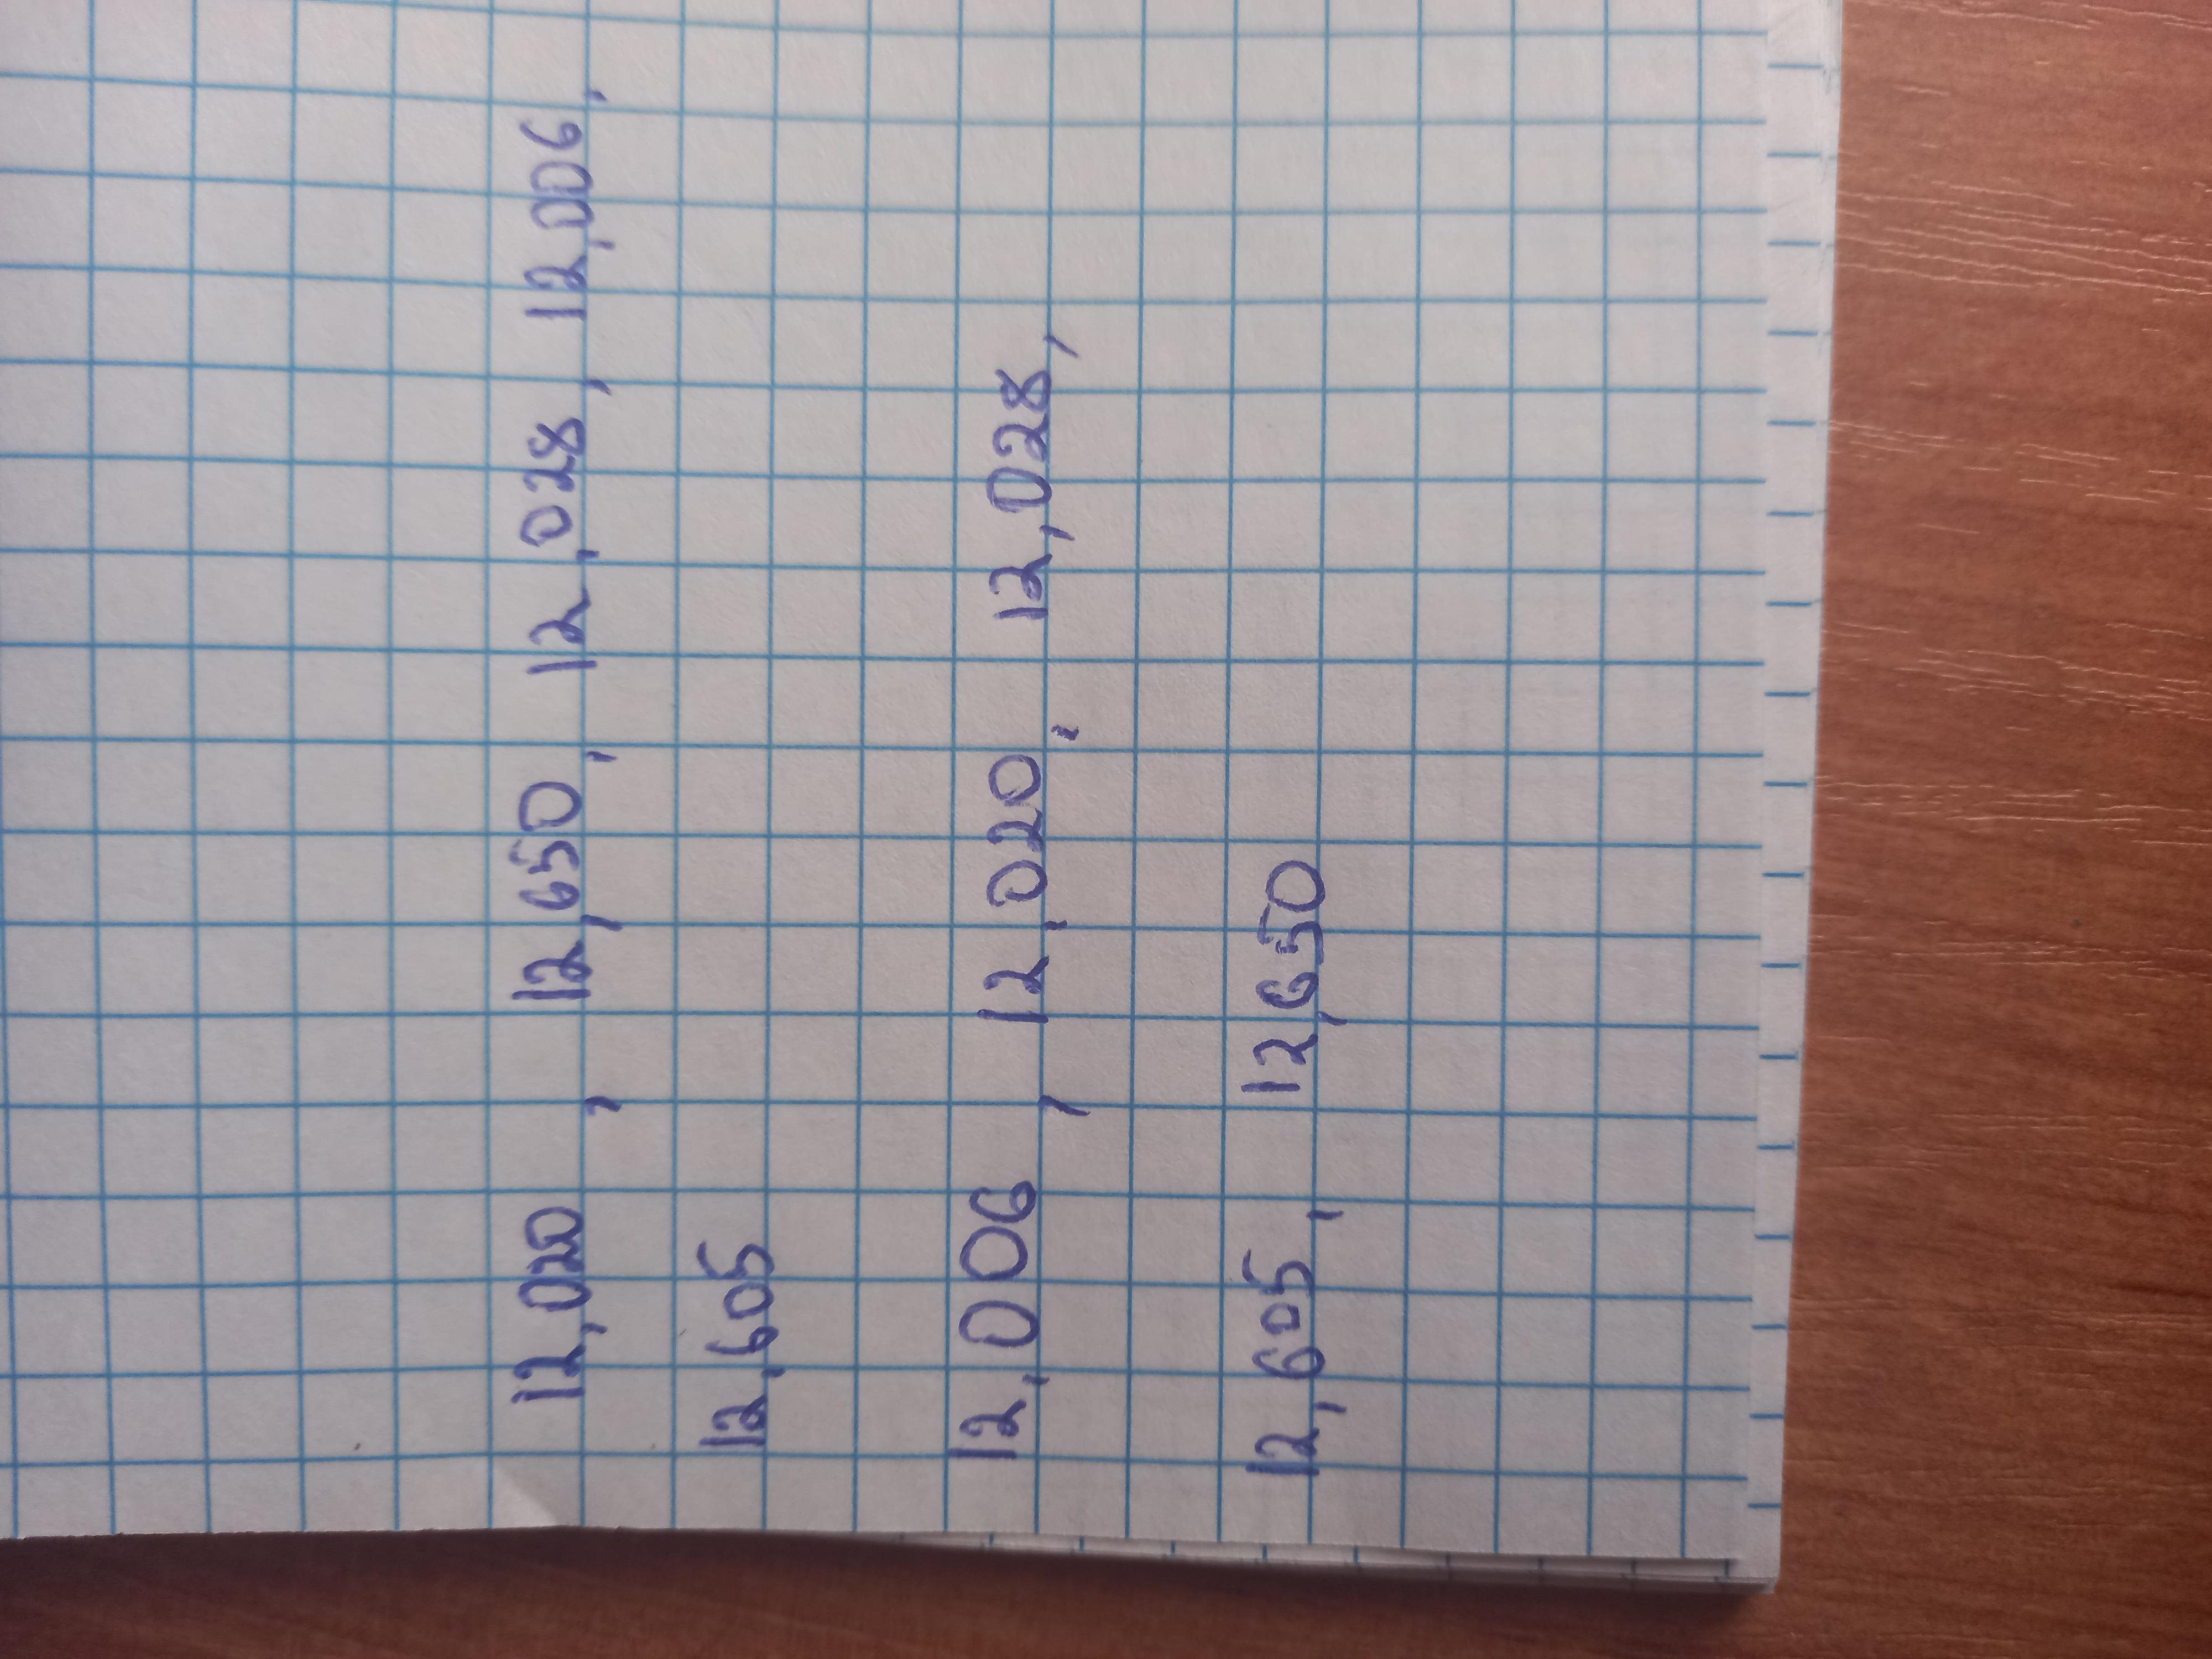 12,020, 12,650, 12,028, 12,006,
12,605
12,006, 12,020, 12,028,
12,605, 12,650